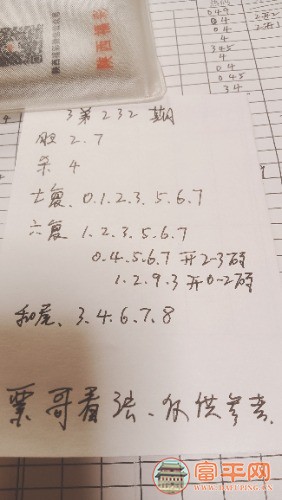 陕西福彩
0.4
4
345
4
04
045
34
3第232期
胆 2.7
杀 4
七复、0.1.2.3.5.6.7
六复 1.2.3.5.6.7
0.4.5.6.7 开2-3码
1.2.9.3 开0-2码
和尾、3.4.6.7.8
票哥看法、仅供参考.
富平网